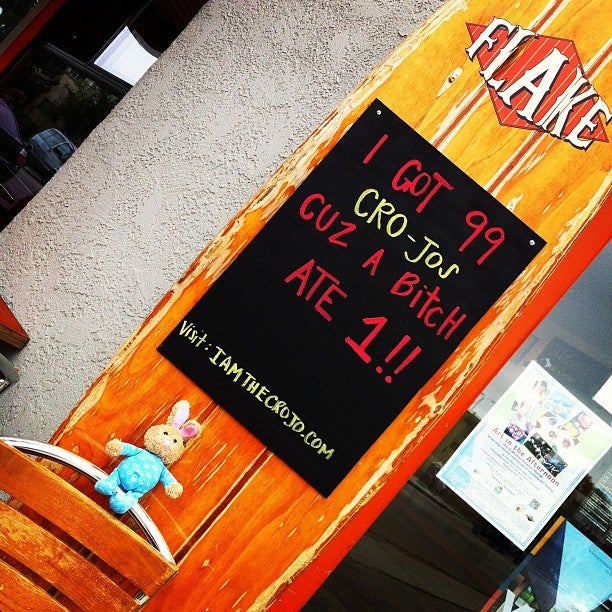 FLAKE
I GOT 99
CRO-JOS
CUZ A BitCH
ATE 1!!
Visit: IAMTHECROJO.COM
Art in the Afternoon